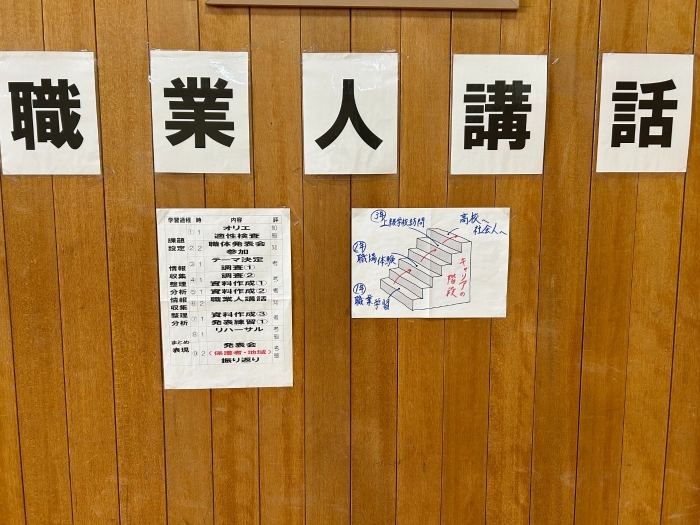 職業人講話
学習過程 時 内容 評
① 1 オリエ
適性検査
課題 設定
② 2 職体発表会
参加
テーマ決定
情報 ③ 1 調査(1)
収集 調査(2)
整理 ④ 1 資料作成(1)
分析 ⑤ 1 資料作成(2)
情報 ⑥ 2 職業人講話
収集
整理 ⑦ 1 資料作成(3)
分析 発表練習(1)
⑧ 1 リハーサル
まとめ 発表会
表現 ⑨ 2 (保護者・地域)
振り返り
3年 上級学校訪問
高校へ
社会人へ
2年 職場体験
1年 職業学習
キャリアの
階段